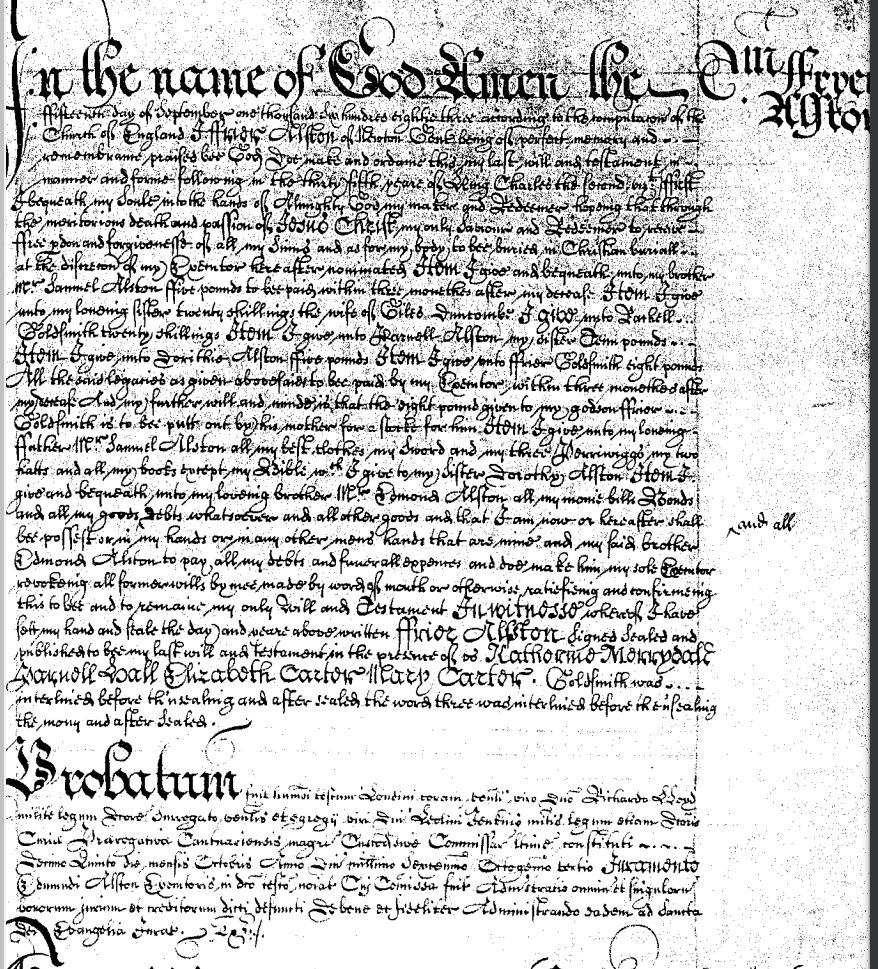 In the name of God Amen the
fifteenth day of September one thousand six hundred eightie three according to the computacon of the
Church of England I ffrier Alston of Newton Gent being of perfect memory and
remembrance praised bee God Doe make and ordaine this my last will and testament in
manner and forme following in the thirty fifth yeare of King Charles the second viz.t ffirst
I bequeath my soule into the hands of Almighty God my maker and Redeemer hopeing that through
the meritorious death and passion of Jesus Christ my only Saviour and Redeemer to receive
ffree pdon and forgivenesse of all my sinns and as for my body to bee buried in Christian buriall
at the discrecon of my Executor hereafter nominated Item I give and bequeath unto my brother
Mr. Samuel Alston ffive pounds to bee paid within three monethes after my decease Item I give
unto my loveing sister twenty shillings the wife of Giles Duncombe I give unto
Goldsmith twenty shillings Item I give unto Parnell Alston my sister Tenn pounds
Item I give unto Dorithie Alston ffive pounds Item I give unto ffrier Goldsmith eight pounds
All the said legacies as given abovesaid to bee paid by my Executor within three monethes after
my decease And my further will and minde is that the eight pound given to my godson ffrier
Goldsmith is to bee putt out by his mother for a stocke for him Item I give unto my loveing
ffather Mr. Samuel Alston all my best clothes my sword and my three Perriwiggs my two
hatts and all my books except my Bible wch I give to my sister Dorothy Alston Item I
give and bequeath unto my loveing brother Mr. Edmond Alston all my monie bills Bonds
and all my goods ‸ debts whatsoever and all other goods and that I am now or hereafter shall
‸ and all
bee possest or in my hands or in any other mens hands that are mine and my said brother
Edmond Alston to pay all my debts and funerall expences and doe make him my sole Executor
revokeing all former wills by mee made by word of mouth or otherwise ratifieing and confirmeing
this to bee and to remaine my only Will and Testament In witnesse whereof I have
sett my hand and seale the day and yeare above written ffrier Alston Signed sealed and
published to bee my last will and testament in the presence of us Katherine Merrydale
Parnell Hall Elizabeth Carter Mary Carter. Goldsmith was
interlined before th'nsealing and after sealed the word three was interlined before the ensealing
the mony and after sealed.
Probatum fuit humoi testum Londini coram venli viro Dno Richardo Lloyd
milite legum Dcore Surrogato venlis et egregij viri Dni Leolini Jenkins militis legum etiam Dcoris
Curiae Praerogativa Cantuariensis magri Custodis sive Commissar ltime constituti
Decimo Quinto die mensis Octobris Anno Dni millimo Sexcenmo Octogesimo tertio Juramento
Edmundi Alston Executoris in dco testo noiat Cui Comissa fuit Administratio omnium et singulorum
bonorum jurium et creditorum dicti defuncti De bene et fideliter Administrando eadem ad sancta
Dei Evangelia Jurat. Exr.